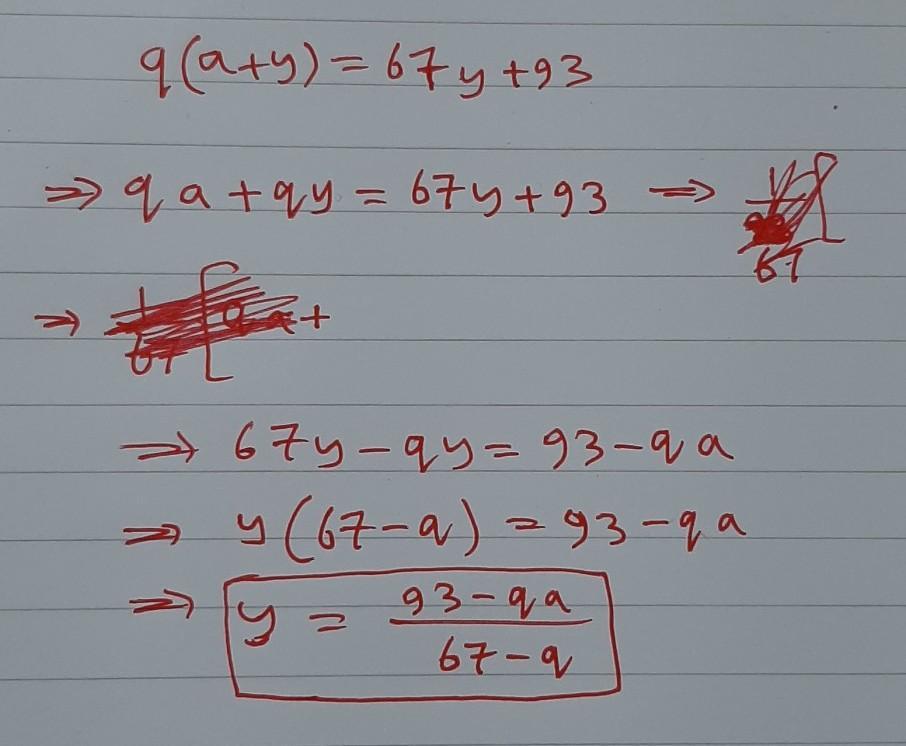 q(a+y) = 67y+93
⇒ qa+qy = 67y+93 ⇒
⇒ +
⇒ 67y-qy = 93-qa
⇒ y(67-q) = 93-qa
⇒ y = \frac{93-qa}{67-q}